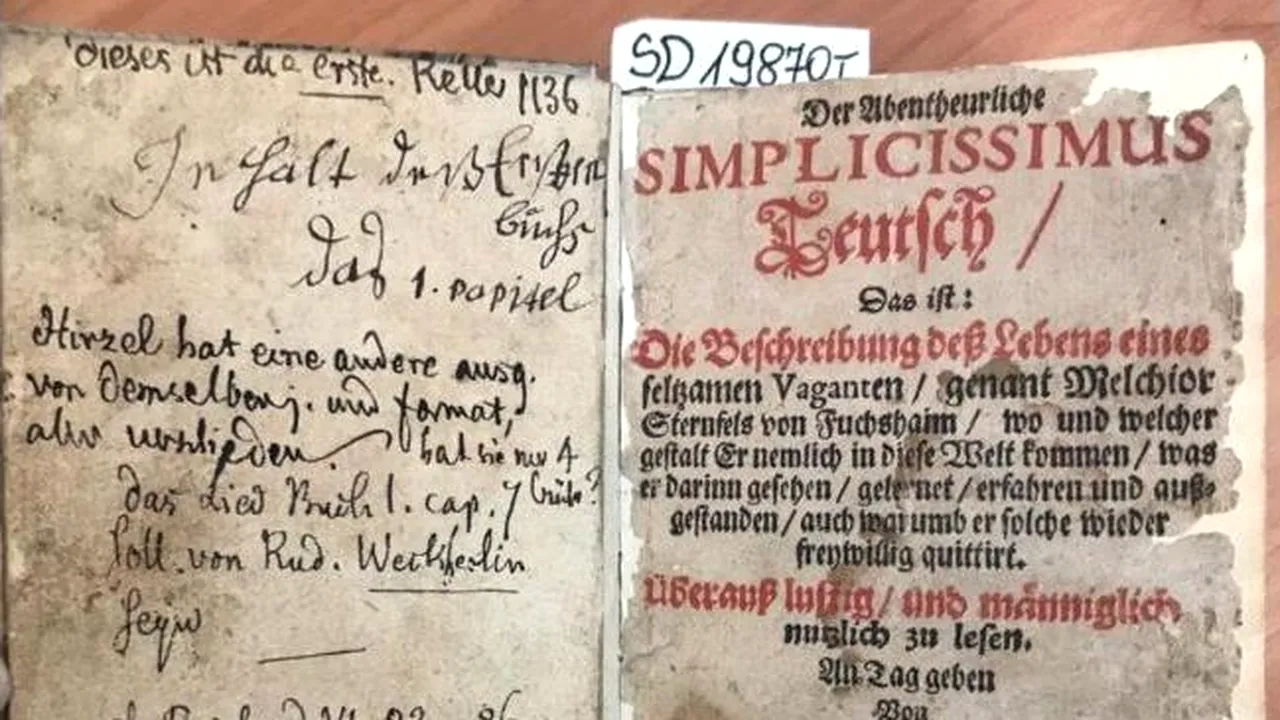 dieses ist die erste. Keller 1136
Inhalt deß Ersten
buchs
Das 1. capitel
Hirzel hat eine andere ausg.
von demselben j. und format,
aber verschieden. hat sie nur 4
das Lied Buch 1. cap. 7
soll von Rud. Weckherlin
seyn
SD 19870T
Der Abentheurliche
SIMPLICISSIMUS
Teutsch /
Das ist:
Die Beschreibung deß Lebens eines
seltzamen Vaganten / genant Melchior
Sternfels von Fuchshaim / wo und welcher
gestalt Er nemlich in diese Welt kommen / was
er darinn gesehen / gelernet / erfahren und auß-
gestanden / auch warumb er solche wieder
freywillig quittirt.
Überauß lustig / und männiglich
nutzlich zu lesen.
An Tag geben
Von